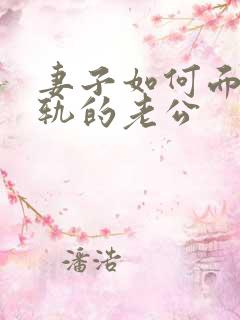 妻子如何而
轨的老公
潘浩